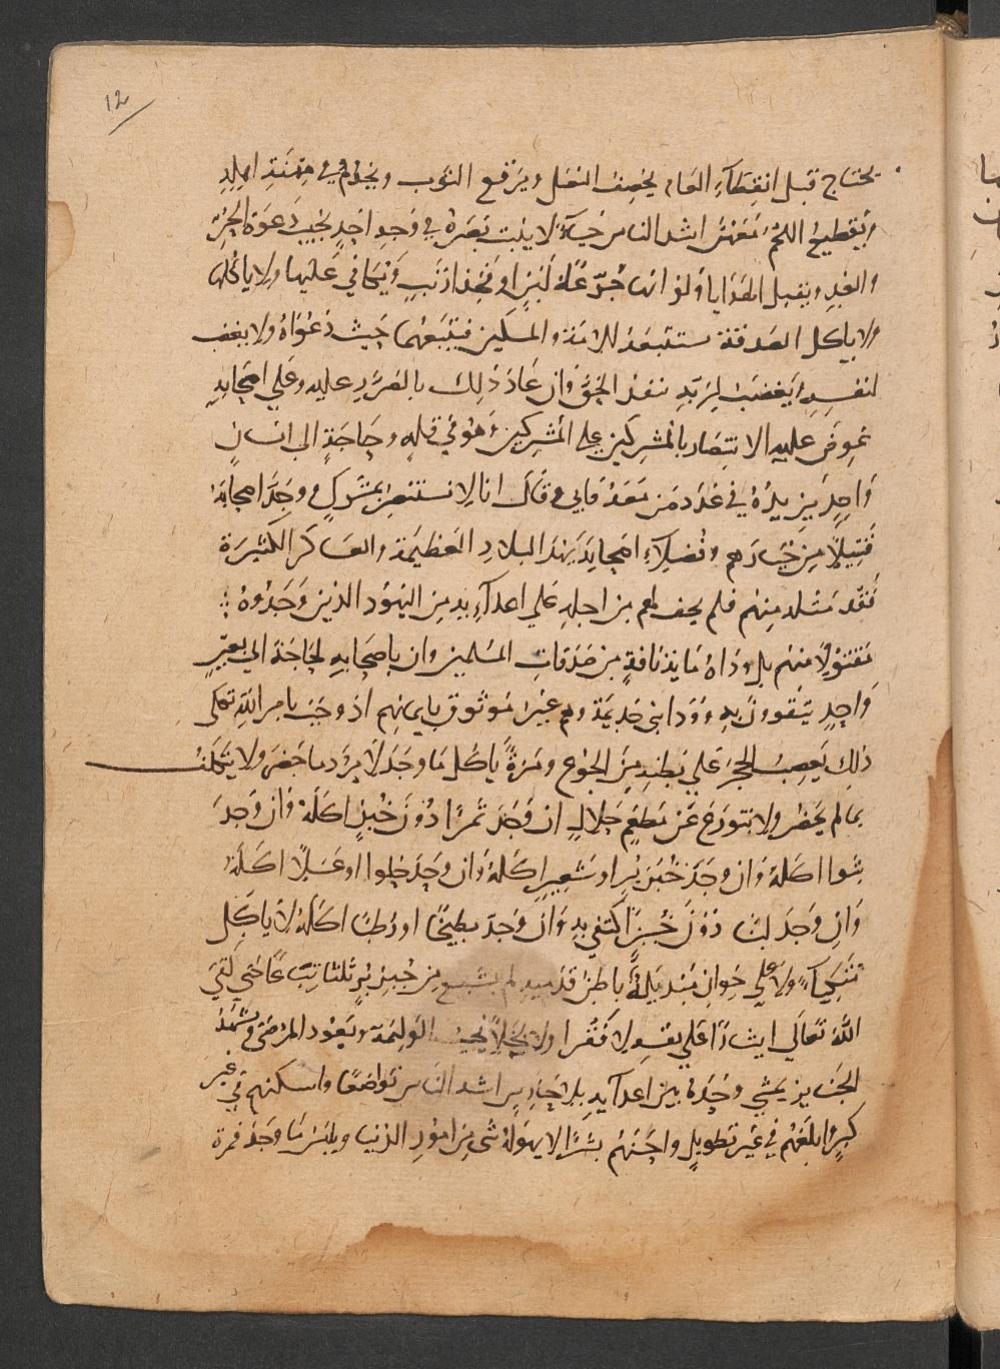 12
يحتاج قبل انقضاء العام يخصف النعل ويرقع الثوب ويخدم في مهنة اهله
ويقطع اللحم معهن اشد الناس حياء لا يثبت بصره في وجه احد يجيب دعوة الحر
والعبد ويقبل الهدايا ولو انها جرعة لبن او فخذ ارنب ويكافي عليها ولا ياكلها
ولا ياكل الصدقة ستتبعه الامة والمسكين فيتبعهما حيث دعواه ولا يغضب
لنفسه ويغضب لربه منفذ الحق وان عاد ذلك بالضرر عليه وعلي اصحابه
عرض عليه الانتصار بالمشركين علي المشركين وهو في قله وحاجة الي انسان
واحد يزيده في عدد من معه فابي وقال انا لا نستنصر بمشرك ووجد اصحابه
قتيلا من خيارهم وفضلاء اصحابه يهد البلاد العظيمة والعساكر الكثيرة
فقد مثله منهم فلم يحف لهم من اجله علي اعدآء به من اليهود الذين وجدوه
مقتولا منهم بل وداه مائة ناقة من صدقات المسلمين وان باصحابه لحاجة الي بعير
واحد يتقوون به وودا بني خديمة وهم غير موثوق بايمانهم اذ وجب بامر الله تعالي
ذلك يعصب الحجر علي بطنه من الجوع ومرة ياكل ما وجد لا يرد ما حضر ولا يتكلف
بما لم يحضر ولا يتورع عن مطعم حلال ان وجد تمرا دون خبز اكله وان وجد
شوا اكله وان وجد خبز بر او شعير اكله وان وجد حلوا او عسلا اكله
وان وجد لبنا دون خبز اكتفي به وان وجد بطيخا او رطبا اكله لا ياكل
متكيا ولا علي خوان منديله باطن قدميه لم يشبع من خبز بر ثلثا تباعا حتي لقي
الله تعالي ايثارا علي نفسه لا فقرا ولا بخلا يجيب الوليمة ويعود المرضي ويشهد
الجنايز يمشي وحده بين اعدآيه بلا حارس اشد الناس تواضعا واسكنهم في غير
كبر ابلغهم في غير تطويل واحسنهم بشرا لا يهوله شي من امور الدنيا ويلبس ما وجد فمرة